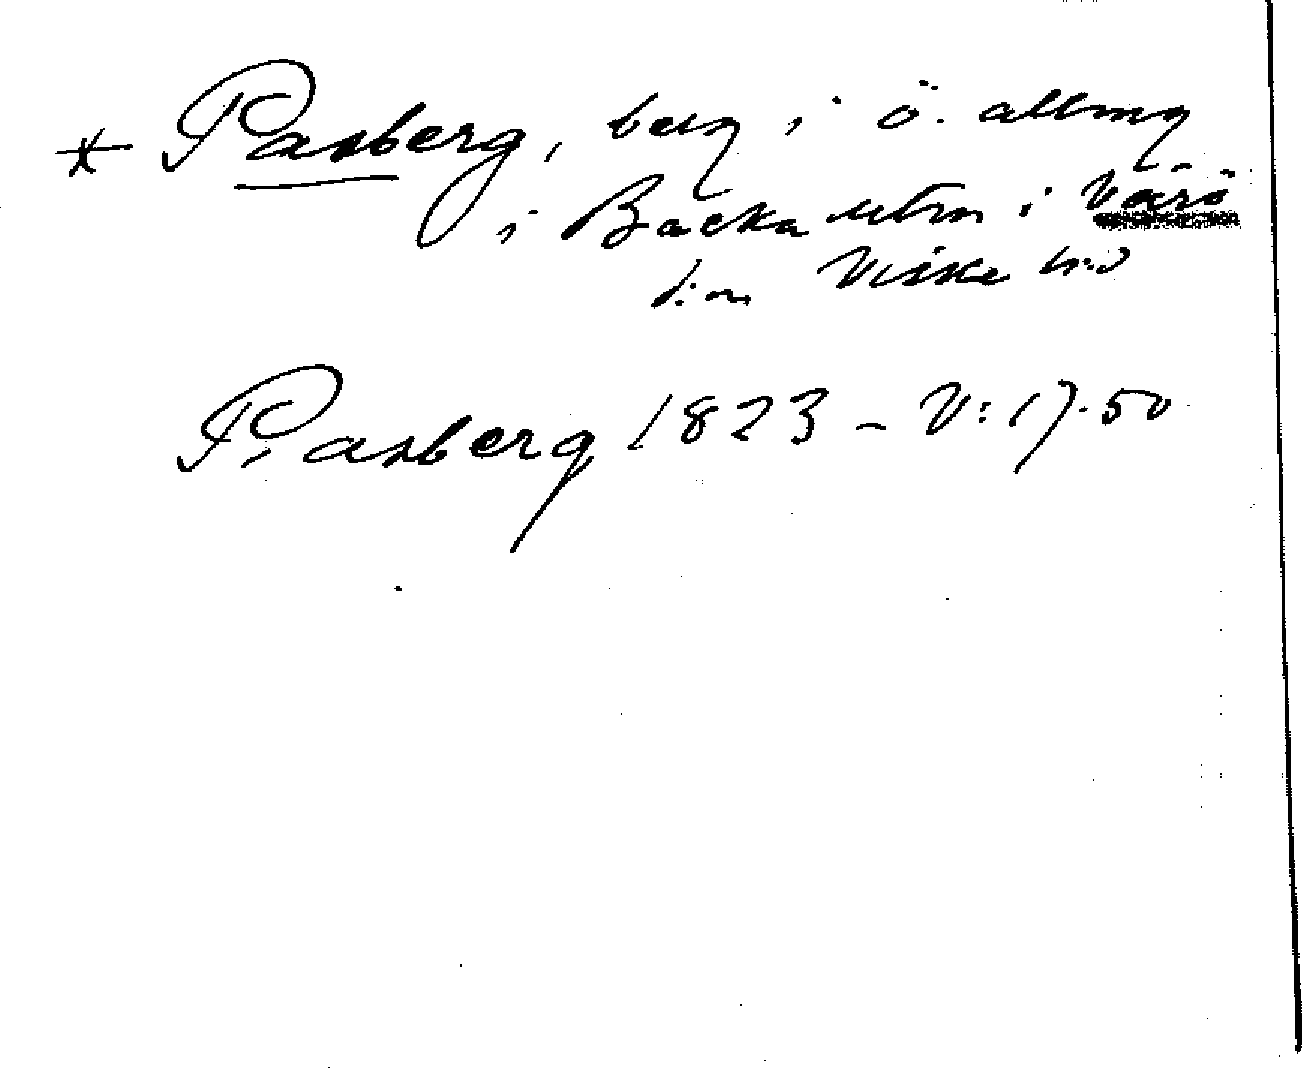 * Pasberg, berg i ö. allmg
i Backa utm i Värö
s:n Viske hd
Pasberg 1823 – V: 17.50